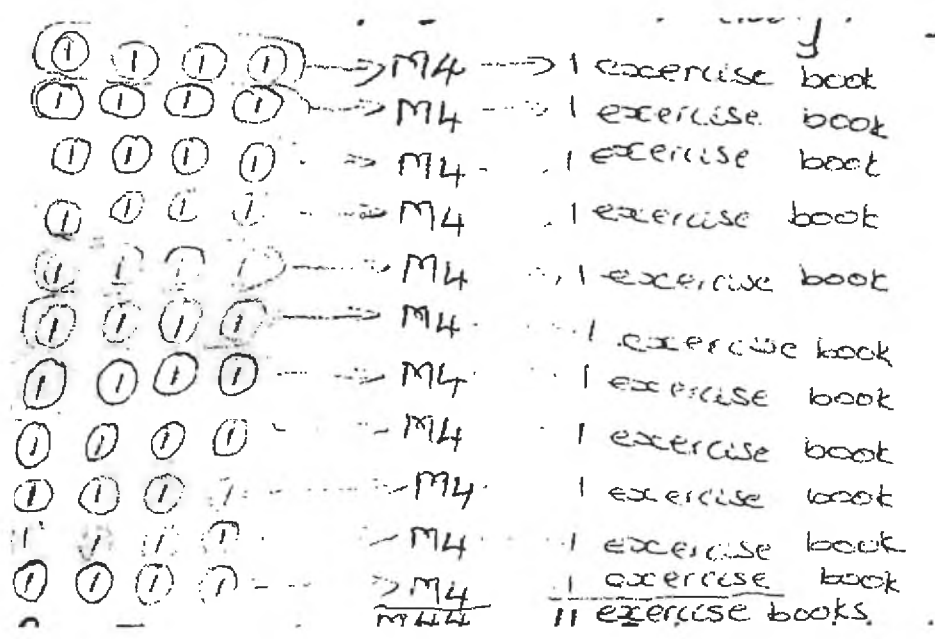 ① ① ① ① → M4 → 1 excercise book
① ① ① ① → M4 → 1 exercise book
① ① ① ① → M4 1 exercise book
① ① ① ① → M4 1 exercise book
① ① ① ① → M4 1 exercise book
① ① ① ① → M4 1 exercise book
① ① ① ① → M4 1 exercise book
① ① ① ① M4 1 exercise book
① ① ① ① M4 1 exercise book
① ① ① ① M4 1 exercise book
① ① ① ① → M4 1 exercise book
M44 11 exercise books